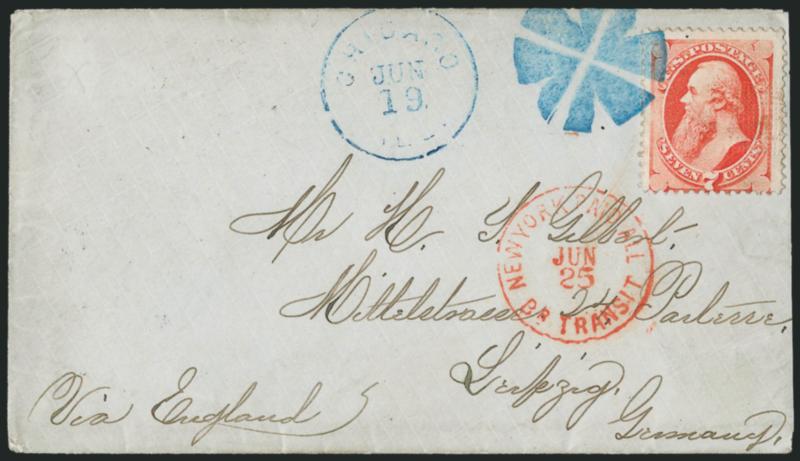 CHICAGO
JUN
19
ILL.
U.S. POSTAGE
SEVEN 7 CENTS
Mr H. Gilbert.
NEW YORK PAID ALL
JUN
25
BR TRANSIT
Mittelstrasse 24 Parterre.
Leipzig.
Via England
Germany.